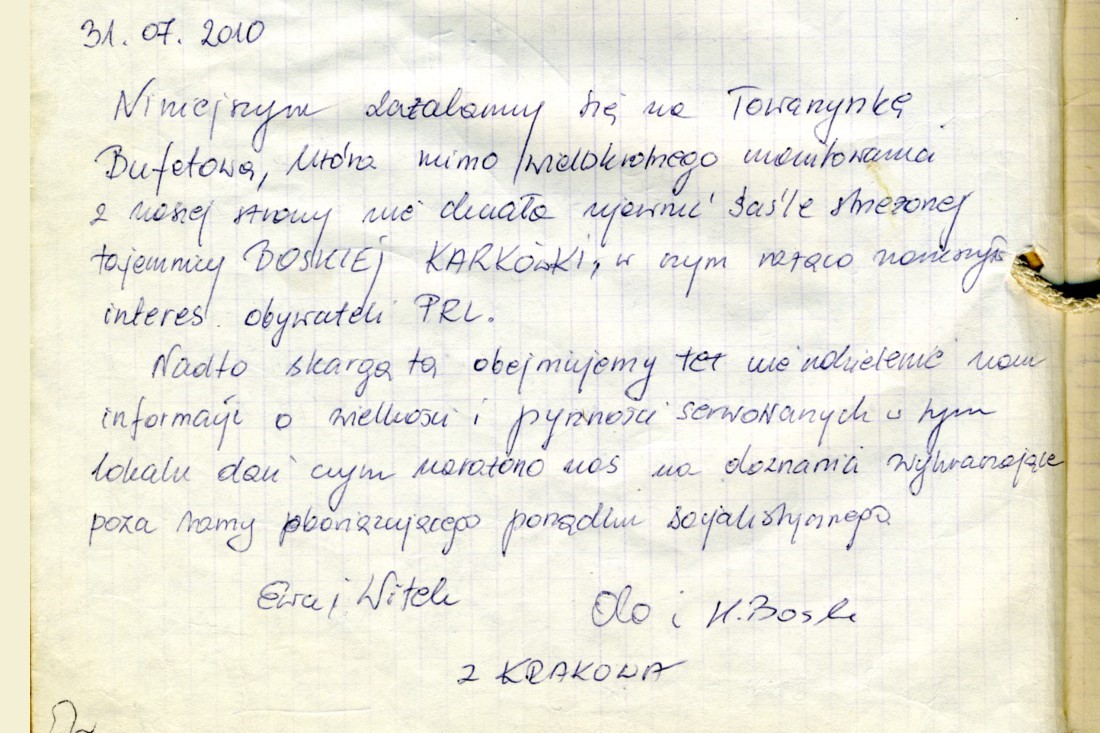 31. 07. 2010
Niniejszym zażalamy się na Towarzyszkę
Bufetową, która mimo wielokrotnego monitowania
z naszej strony nie chciała ujawnić ściśle strzeżonej
tajemnicy BOSKIEJ KARKÓWKI, w czym rażąco naruszyła
interes obywateli PRL.
Nadto skargą tą obejmujemy też nieudzielenie nam
informacji o wielkości i pyszności serwowanych w tym
lokalu dań czym narażono nas na doznania wykraczające
poza ramy obowiązującego porządku socjalistycznego
Ewa i Witek
Olo i H. Bosk
z KRAKOWA